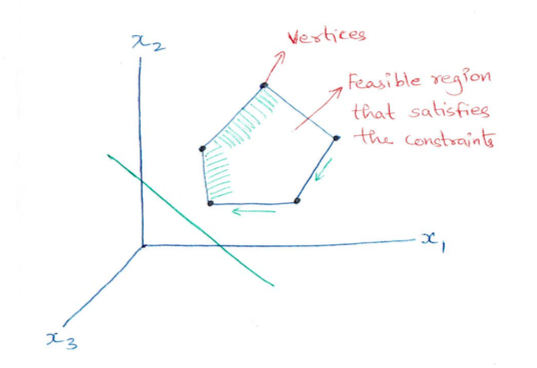 Vertices
x₂
Feasible region
that satisfies
the constraints
x₁
x₃